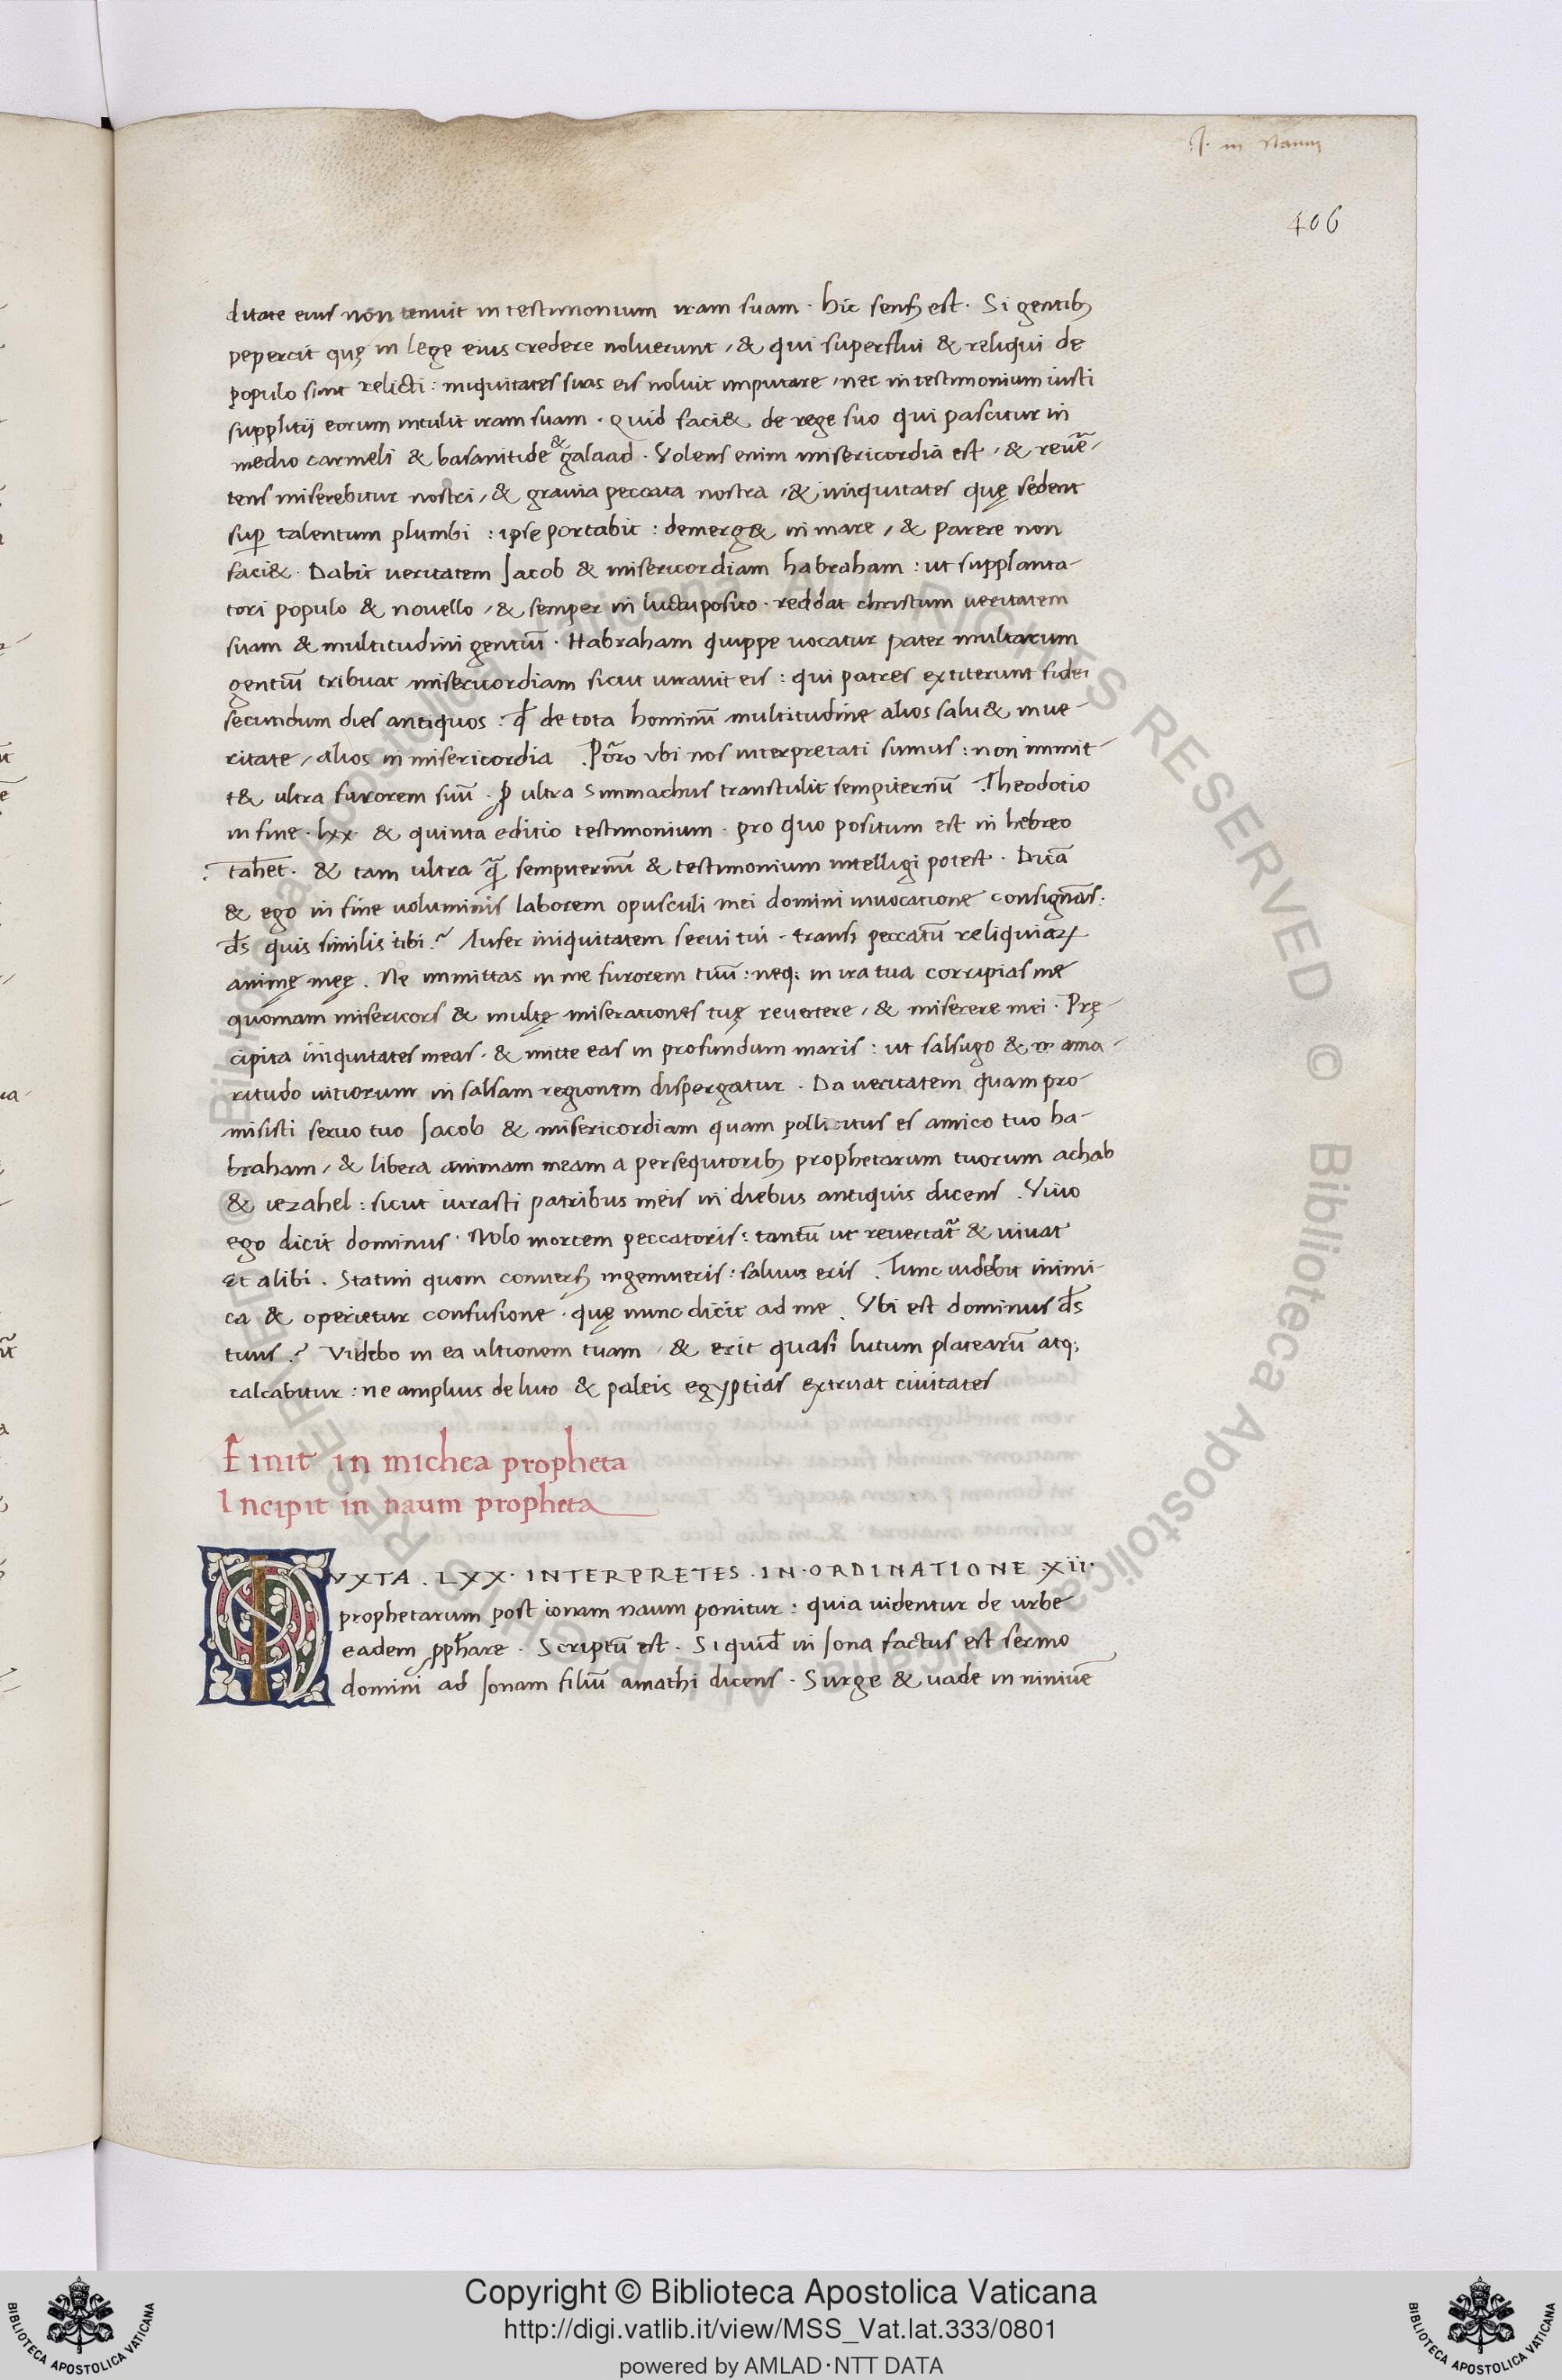 J. in Naum
406
ditate eius non tenuit in testimonium iram suam · hic sensꝰ est · Si gentibꝫ
pepercit quę in lege eius credere noluerunt / & qui superflui & reliqui de
populo sunt relicti : iniquitates suas eis noluit imputare / nec in testimonium iusti
supplitij eorum intulit iram suam · Quid faci& de rege suo qui pascitur in
medio carmeli & basanitide & galaad · Volens enim misericordiā est / & reuē-
tens miserebitur nostri / & grauia peccata nostra / & iniquitates quę sedent
suꝑ talentum plumbi : ipse portabit : demerg& in mare / & parere non
faci& · Dabit ueritatem Jacob & misericordiam habraham : ut supplanta-
tori populo & nouello / & semper in luctu posito · reddat christum ueritatem
suam & multitudini gentiū · Habraham quippe uocatur pater multarum
gentiū tribuat misericordiam sicut iurauit eis : qui patres extiterunt fidei
secundum dies antiquos : qđ de tota hominū multitudine alios salu& in ue-
ritate / alios in misericordia . Porro ubi nos interpretati sumus : non immit-
t& ultra furorem suū · ꝓ ultra Simmachus transtulit sempiternū . Theodotio
in fine · lxx · & quinta editio testimonium · pro quo positum est in hebreo
: tahet · & tam ultra quā sempiternū & testimonium intelligi potest · Dicā
& ego in fine uoluminis laborem opusculi mei domini inuocatione consignās :
ds̄ quis similis tibi ? Aufer iniquitatem serui tui · transi peccatū reliquiaꝝ
animę męę . Ne immittas in me furorem tuū : neqꝫ in ira tua corripias me
quoniam misericors & multę miserationes tuę reuertere / & miserere mei · Prę-
cipita iniquitates meas · & mitte eas in profundum maris : ut salsugo & ama-
ritudo uitiorum in salsam regionem dispergatur · Da ueritatem quam pro-
misisti seruo tuo Jacob & misericordiam quam pollicitus es amico tuo ha-
braham / & libera animam meam a persequtoribꝫ prophetarum tuorum achab
& iezahel : sicut iurasti patribus meis in diebus antiquis dicens . Viuo
ego dicit dominus · Nolo mortem peccatoris : tantū ut reuertat̃ & uiuat
Et alibi . Statim quom conuersꝰ ingemueris : saluus eris . Tunc uidebit inimi-
ca & operietur confusione · quę nunc dicit ad me . Vbi est dominus ds̄
tuus ? Videbo in ea ultionem tuam / & erit quasi lutum platearū atqꝫ
calcabitur : ne amplius de luto & paleis egyptias extruat ciuitates
Finit in michea propheta
Incipit in naum propheta
IVXTA . LXX · INTERPRETES . IN · ORDINATIONE · XII ·
prophetarum post ionam naum ponitur : quia uidentur de urbe
eadem ꝓph̄are · Scriptū est · Siquid̄ in Jona factus est sermo
domini ad Jonam filiū amathi dicens · Surge & uade in niniuē
Biblioteca Apostolica Vaticana ALL RIGHTS RESERVED © Biblioteca Apostolica Vaticana ALL RIGHTS RESERVED ©
Copyright © Biblioteca Apostolica Vaticana
http://digi.vatlib.it/view/MSS_Vat.lat.333/0801
powered by AMLAD·NTT DATA
BIBLIOTECA APOSTOLICA VATICANA
BIBLIOTECA APOSTOLICA VATICANA